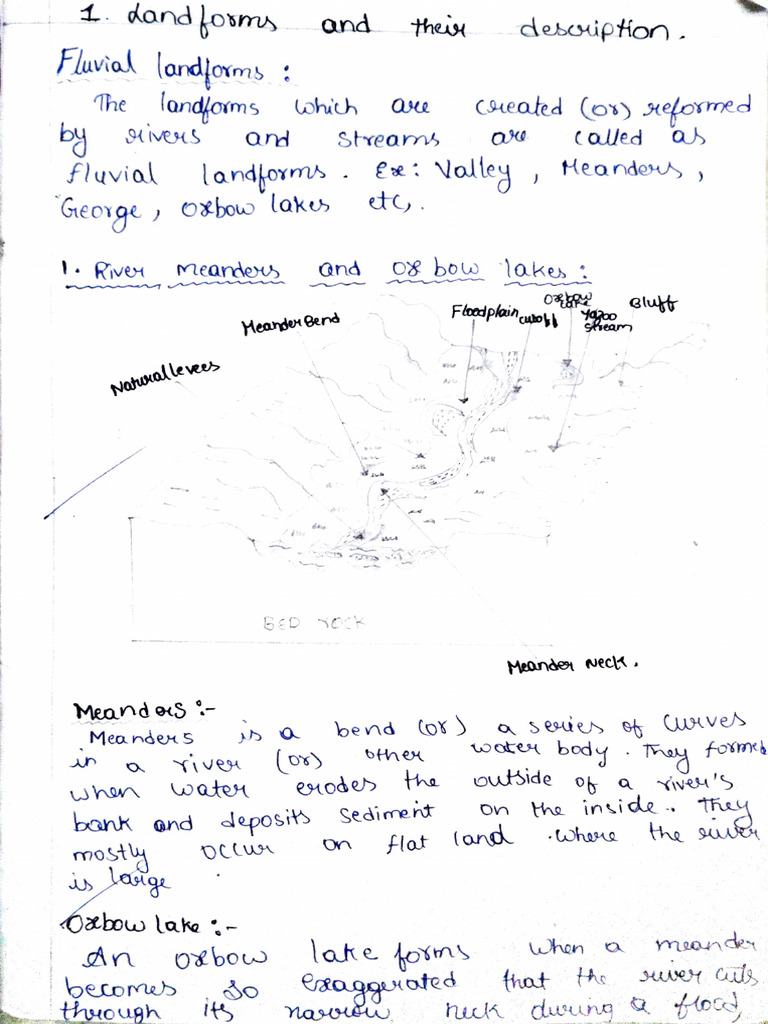 1. Landforms and their description.
Fluvial landforms :
The landforms which are created (or) reformed
by rivers and streams are called as
fluvial landforms. Ex: Valley, Meanders,
George, Oxbow lakes etc,.
1. River meanders and ox bow lakes :
Oxbow lake
Bluff
Floodplain
cutoff
Yazoo stream
Meander Bend
Natural levees
BED ROCK
Meander Neck.
Meanders :-
Meanders is a bend (or) a series of curves
in a river (or) other water body. They formed
when water erodes the outside of a river's
bank and deposits sediment on the inside. They
mostly occur on flat land .where the river
is large
Oxbow lake :-
An oxbow lake forms when a meander
becomes so exaggerated that the river cuts
through its narrow neck during a flood,